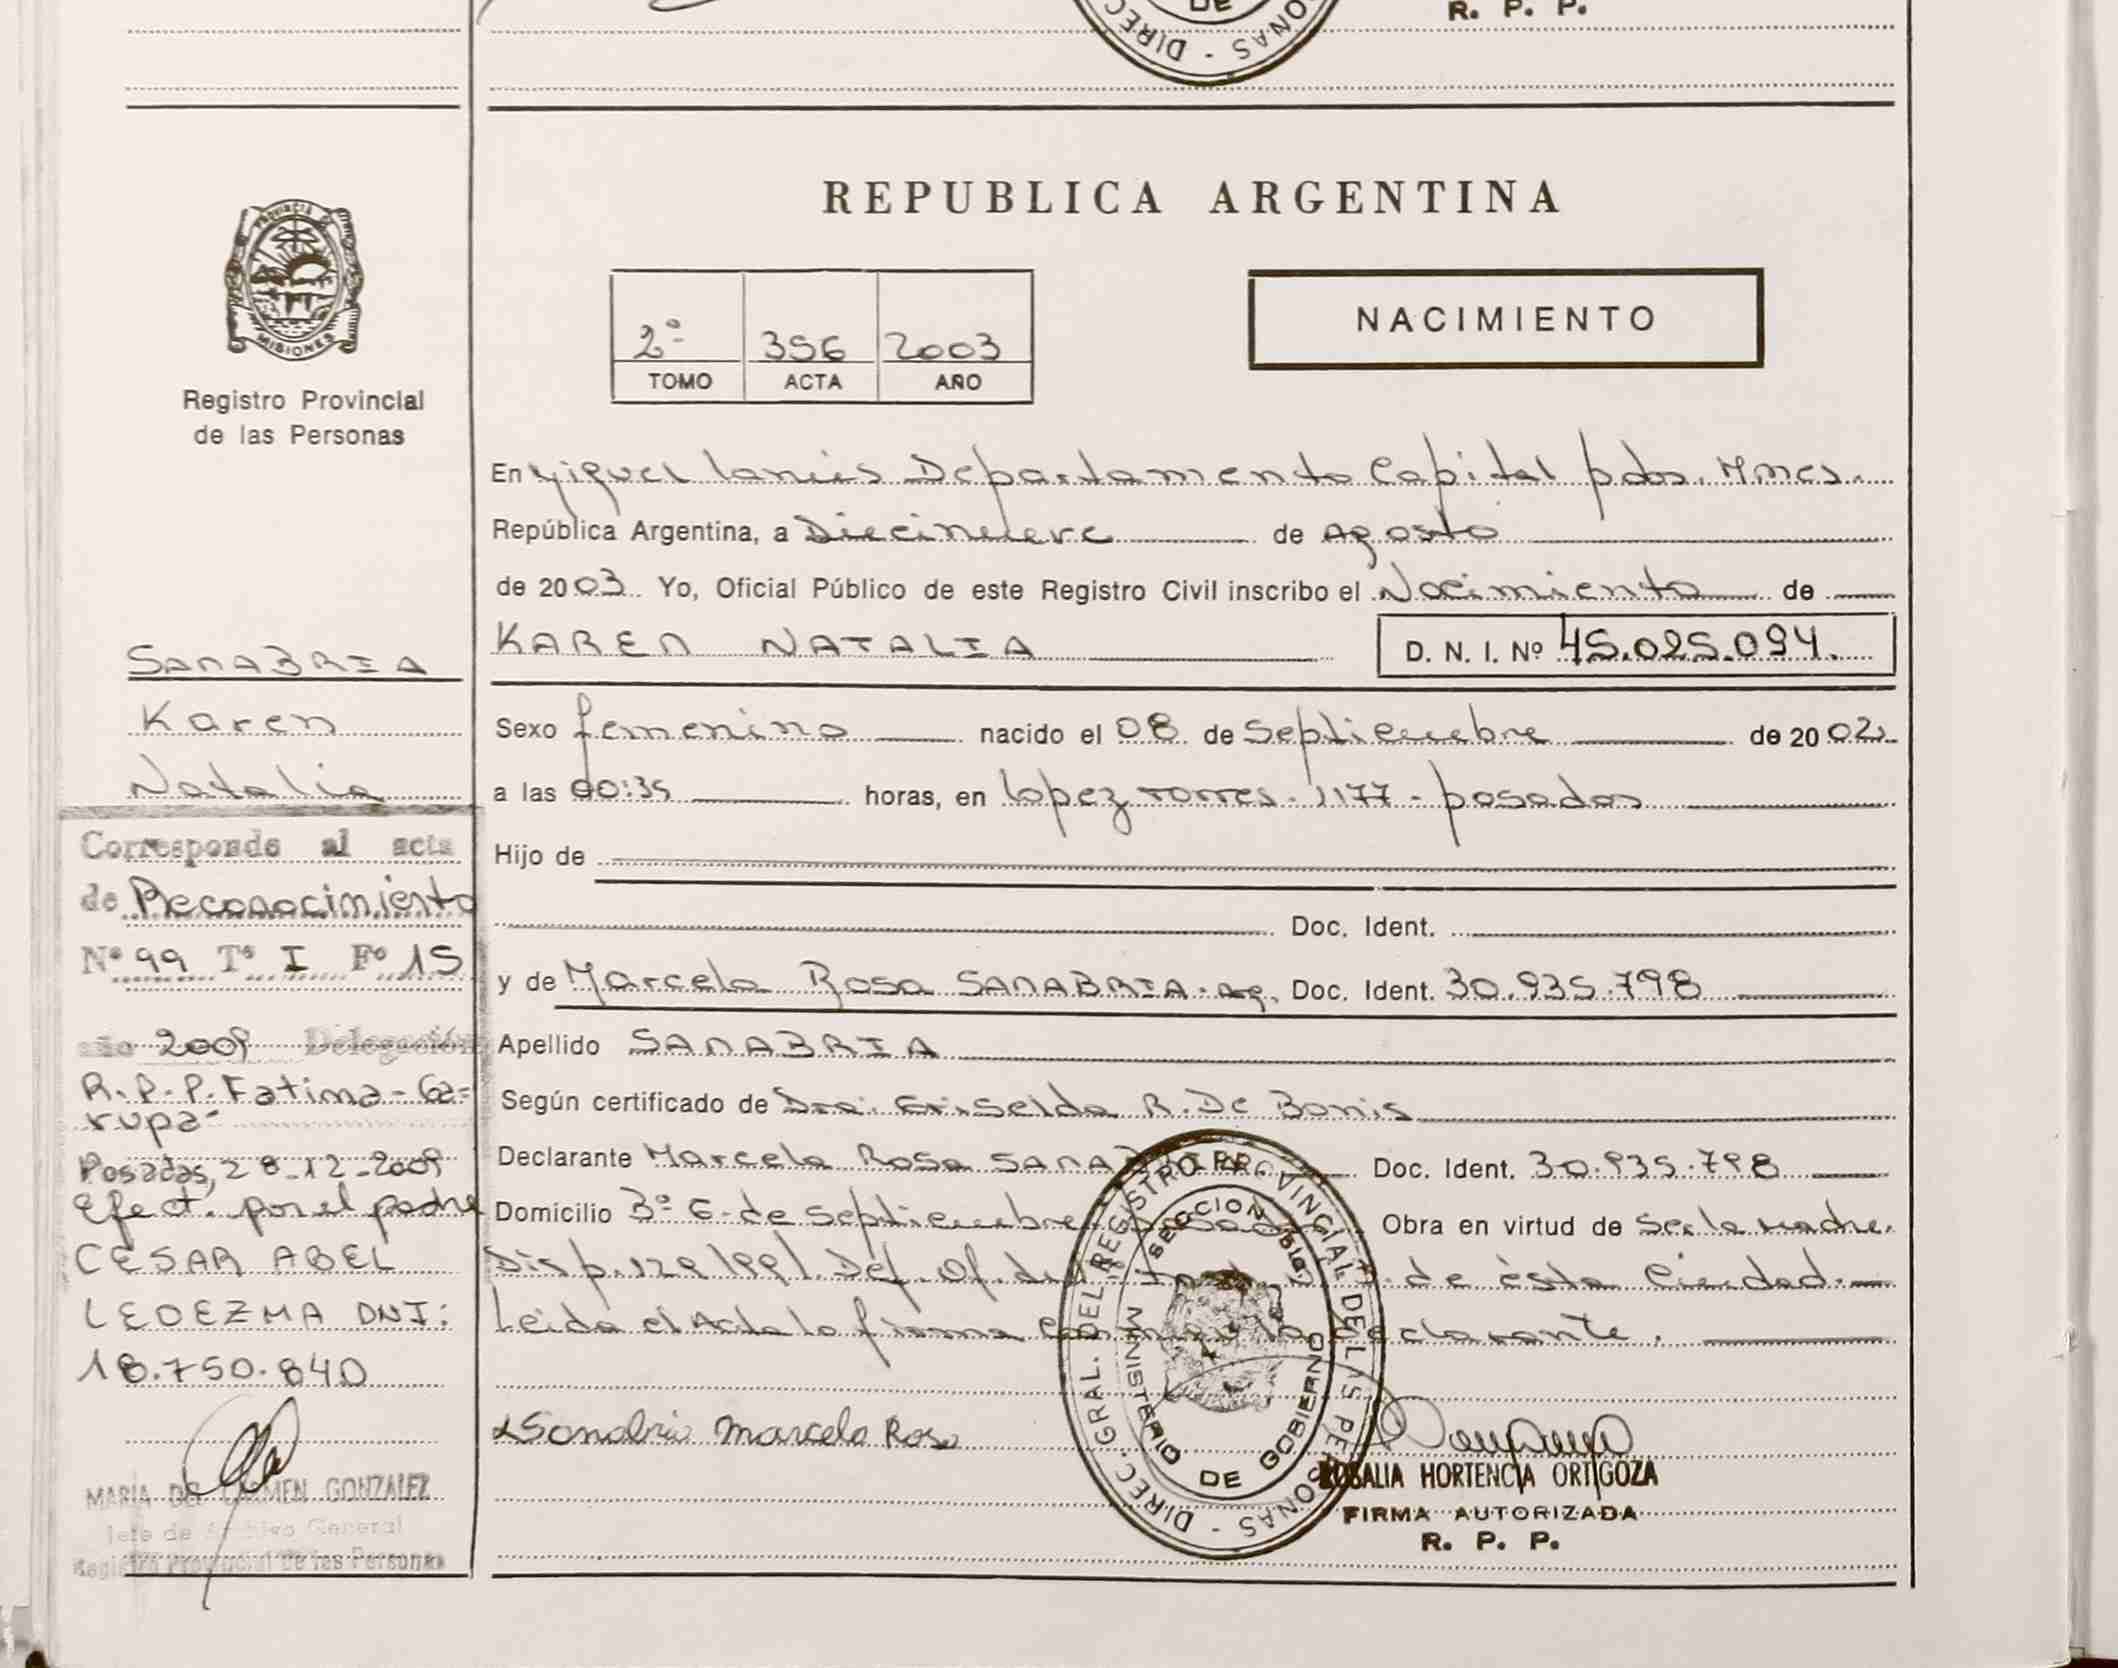 DE
DIREC
ONAS -
R. P. P.
PROVINCIA
MISIONES
Registro Provincial
de las Personas
REPUBLICA ARGENTINA
2º 356 2003
TOMO ACTA AÑO
NACIMIENTO
En Miguel Lanús Departamento Capital pdas. Mnes.
República Argentina, a Diecinueve de Agosto
de 2003. Yo, Oficial Público de este Registro Civil inscribo el Nacimiento de
KAREN NATALIA
D. N. I. Nº 45.025.094.
Sexo femenino nacido el 08 de Septiembre de 2002
a las 00:35 horas, en Lopez Torres. 1177 - posadas
Hijo de
Doc. Ident.
y de Marcela Rosa SANABRIA. Ag. Doc. Ident. 30.935.798
Apellido SANABRIA
Según certificado de Dra. Griselda R. De Bonis
Declarante Marcela Rosa Doc. Ident. 30.935.798
Domicilio 3º 6 - de Septiembre Obra en virtud de Ser la madre.
Disp. 129/991. Def. Of. de ésta Ciudad.
Leida el Acta la firma declarante.
Sanabria Marcela Rosa
DIREC. GRAL. DEL REGISTRO PROVINCIAL DE LAS PERSONAS -
MINISTERIO DE GOBIERNO
SECCION
ROSALIA HORTENCIA ORTIGOZA
FIRMA AUTORIZADA
R. P. P.
SANABRIA
Karen
Natalia
Corresponde al acta
de Reconocimiento
Nº 99 Tº I Fº 15
año 2009 Delegación
R.P.P. Fatima - Ga=
rupa-
Posadas, 28-12-2009
Efect. por el padre
CESAR ABEL
LEDEZMA DNI:
18.750.840
MARIA DEL CARMEN GONZALEZ
Jefe de Archivo General
Registro Provincial de las Personas